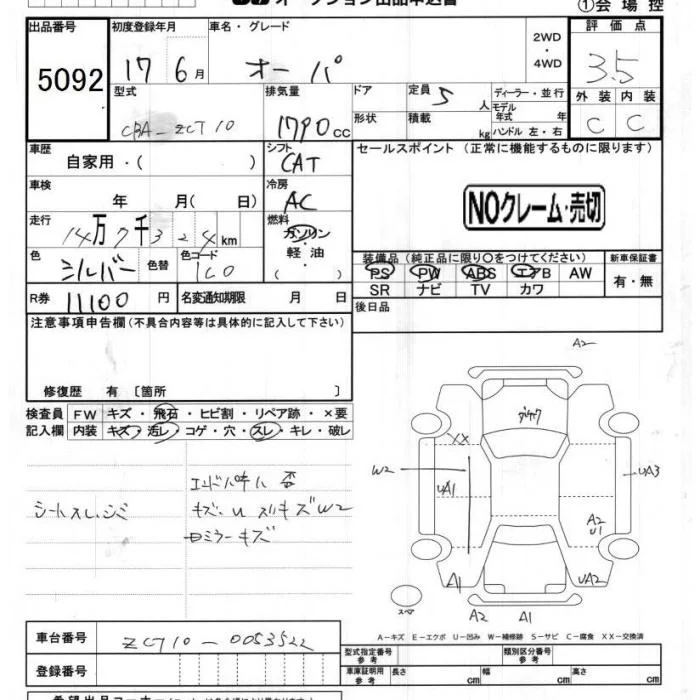 オークション出品申込書 ①会場控
出品番号 初度登録年月 車名・グレード 2WD・4WD 評価点
5092 17 6月 オーパ 3.5
型式 排気量 ドア 定員 5人 ディーラー・並行 外装 内装
CBA-ZCT10 1790cc 形状 積載 kg モデル年式 年 ハンドル 左・右 C C
車歴 自家用・( ) シフト CAT セールスポイント (正常に機能するものに限ります)
車検 年 月( 日) 冷房 AC NOクレーム・売切
走行 14万7千324km 燃料 ガソリン・軽油 ( )
色 シルバー 色替 色コード 1C0 装備品 (純正品に限り○をつけてください) 新車保証書
PS PW ABS エアB AW 有・無
SR ナビ TV カワ
R券 11100円 名変通知期限 月 日 後日品
注意事項申告欄(不具合内容等は具体的に記入して下さい)
修復歴 有 〔箇所 〕
検査員 FW キズ・飛石・ヒビ割・リペア跡・×要
記入欄 内装 キズ・汚レ・コゲ・穴・スレ・キレ・破レ
シートスレ.シミ
キズ.U スリキズW2
ロミラーキズ
A2
XX
W2
UA1
UA3
A2
U1
A1
UA2
スペア
A2 A1
A-キズ E-エクボ U-凹み W-補修跡 S-サビ C-腐食 XX-交換済
車台番号 ZCT10-0053522
型式指定番号 参考 類別区分番号 参考
登録番号
車庫証明用 参考 長さ cm 幅 cm 高さ cm